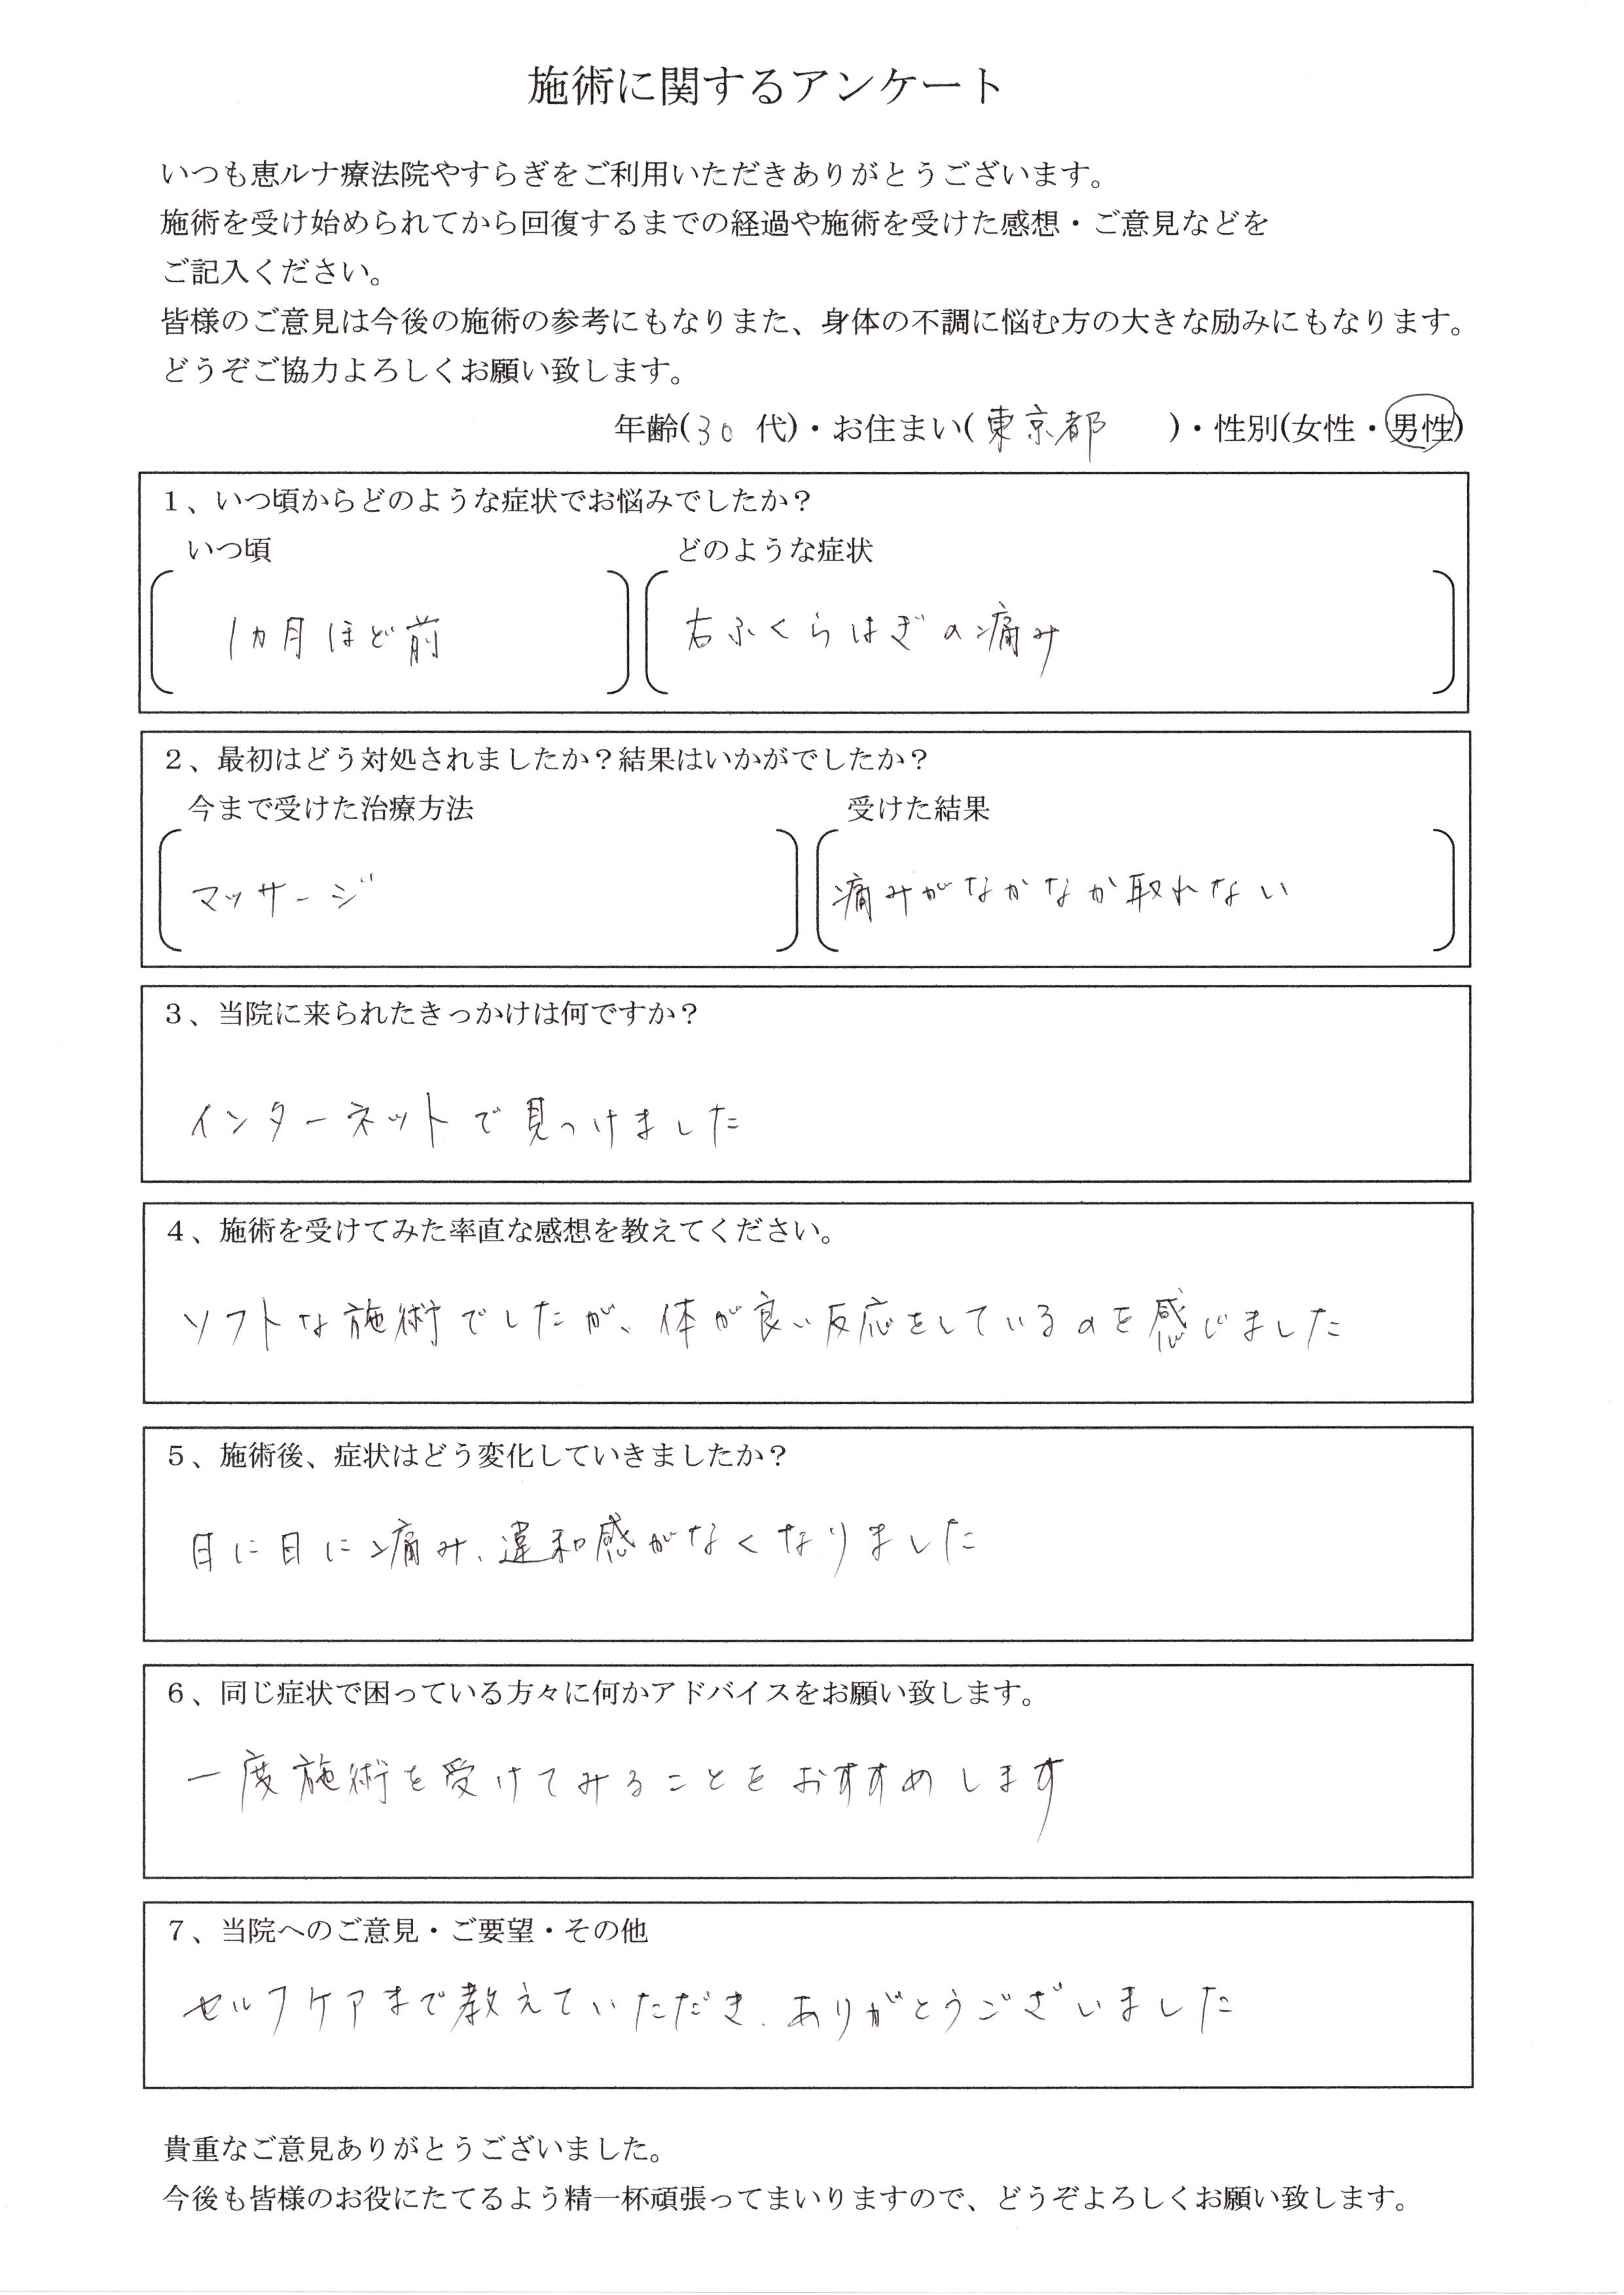 施術に関するアンケート
いつも恵ルナ療法院やすらぎをご利用いただきありがとうございます。
施術を受け始められてから回復するまでの経過や施術を受けた感想・ご意見などを
ご記入ください。
皆様のご意見は今後の施術の参考にもなりまた、身体の不調に悩む方の大きな励みにもなります。
どうぞご協力よろしくお願い致します。
年齢(30 代)・お住まい(東京都 )・性別(女性・男性)
1、いつ頃からどのような症状でお悩みでしたか？
いつ頃 どのような症状
1ヵ月ほど前 右ふくらはぎの痛み
2、最初はどう対処されましたか？結果はいかがでしたか？
今まで受けた治療方法 受けた結果
マッサージ 痛みがなかなか取れない
3、当院に来られたきっかけは何ですか？
インターネットで見つけました
4、施術を受けてみた率直な感想を教えてください。
ソフトな施術でしたが、体が良い反応をしているのを感じました
5、施術後、症状はどう変化していきましたか？
日に日に痛み、違和感がなくなりました
6、同じ症状で困っている方々に何かアドバイスをお願い致します。
一度施術を受けてみることをおすすめします
7、当院へのご意見・ご要望・その他
セルフケアまで教えていただき、ありがとうございました
貴重なご意見ありがとうございました。
今後も皆様のお役にたてるよう精一杯頑張ってまいりますので、どうぞよろしくお願い致します。